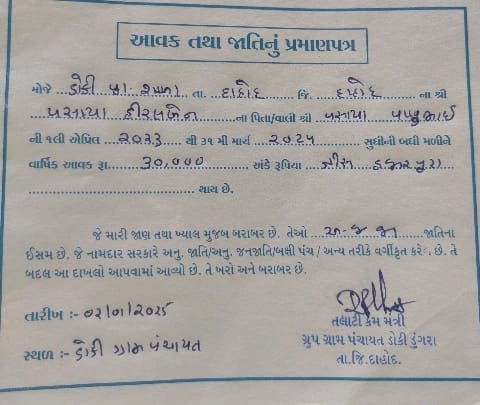 આવક તથા જાતિનું પ્રમાણપત્ર
મોજે ડોકી પ્રા. શાળા તા. દાહોદ જિ. દાહોદ ના શ્રી
પસાયા હીરલબેન ના પિતા/વાલી શ્રી પસાયા પપ્પુભાઈ
ની ૧લી એપ્રિલ ૨૦૨૩ થી ૩૧ મી માર્ચ ૨૦૨૫ સુધીની બધી મળીને
વાર્ષિક આવક રૂા. ૩૦,૦૦૦ અંકે રૂપિયા ત્રીસ હજાર પુરા
થાય છે.
જે મારી જાણ તથા ખ્યાલ મુજબ બરાબર છે. તેઓ અ.જ.જા જાતિના
ઈસમ છે. જે નામદાર સરકારે અનુ. જાતિ/અનુ. જનજાતિ/બક્ષી પંચ / અન્ય તરીકે વર્ગીકૃત કરેલ છે. તે
બદલ આ દાખલો આપવામાં આવ્યો છે. તે ખરો અને બરાબર છે.
તારીખ :- ૦૨/૦૧/૨૦૨૫
તલાટી કમ મંત્રી
સ્થળ :- ડોકી ગ્રામ પંચાયત
ગ્રુપ ગ્રામ પંચાયત ડોકી ડુંગરા
તા.જિ.દાહોદ.